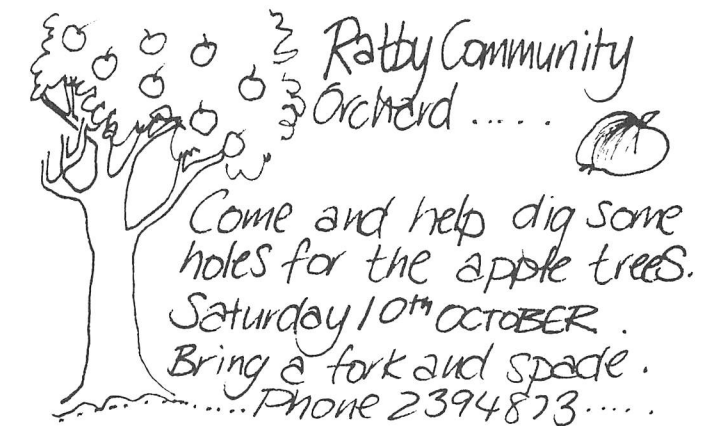 Ratby Community
Orchard .....
Come and help dig some
holes for the apple trees.
Saturday 10th OCTOBER.
Bring a fork and spade.
......Phone 2394873.....